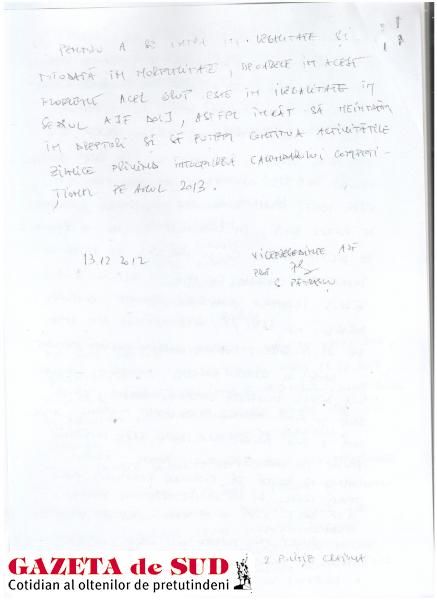 PENTRU A SE INTRA IN LEGALITATE ȘI
TOTODATĂ ÎN NORMALITATE, DEOARECE ÎN ACEST
MOMENT ACEL GRUP ESTE ÎN ILEGALITATE ÎN
SEDIUL AJF DOLJ, ASTFEL ÎNCÂT SĂ REINTRĂM
ÎN DREPTURI SI SĂ PUTEM CONTINUA ACTIVITĂȚILE
ZILNICE PRIVIND ÎNTOCMIREA CALENDARULUI COMPETI-
ȚIONAL PE ANUL 2013.
13.12.2012
VICEPREȘEDINTE AJF
PROF
2 POLIȚIE CRAIOVA
GAZETA de SUD
Cotidian al oltenilor de pretutindeni